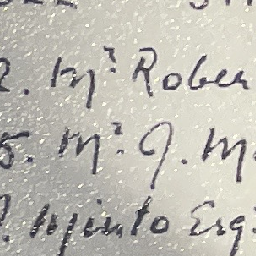 2. Mr. Rober
5. Mr. J. M
Minto Esq: